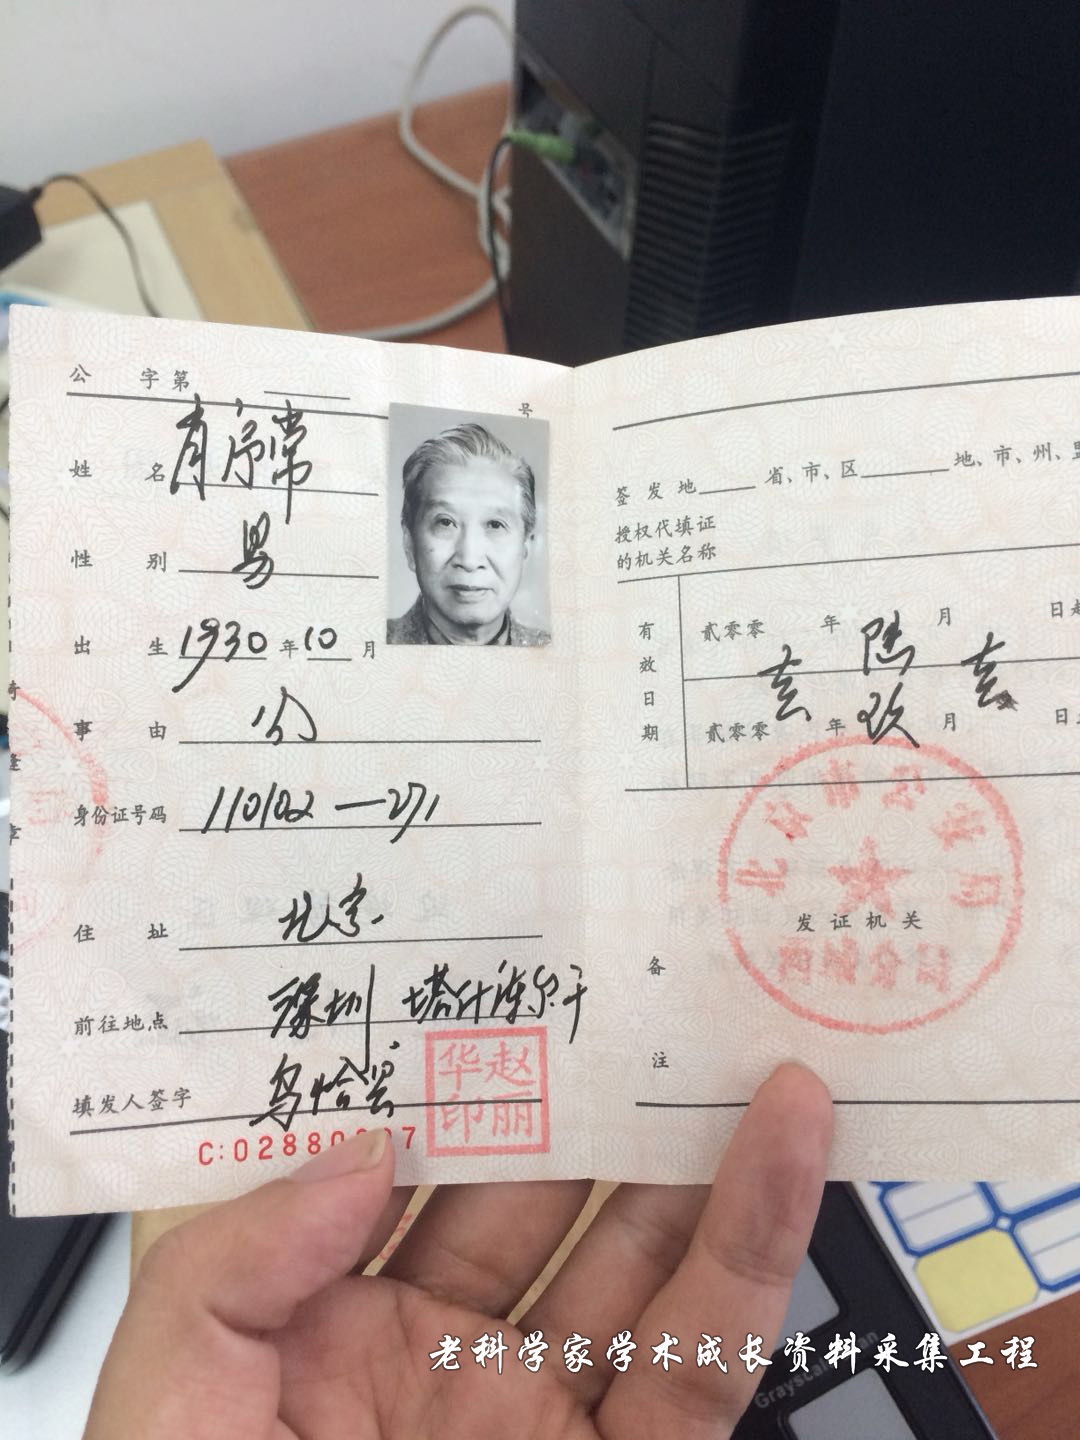 公 字第 号
姓 名 肖序常
性 别 男
出 生 1930 年 10 月
事 由 公
身份证号码 110102—271
住 址 北京
前往地点 深圳 塔什库尔干
填发人签字 乌恰县
赵丽
华印
签发地 省、市、区 地、市、州、盟
授权代填证
的机关名称
有效日期
贰零零 壹 年 陆 月 壹 日起
贰零零 壹 年 玖 月 壹 日
备
注
发证机关
北京市公安局
老科学家学术成长资料采集工程
Grayscale